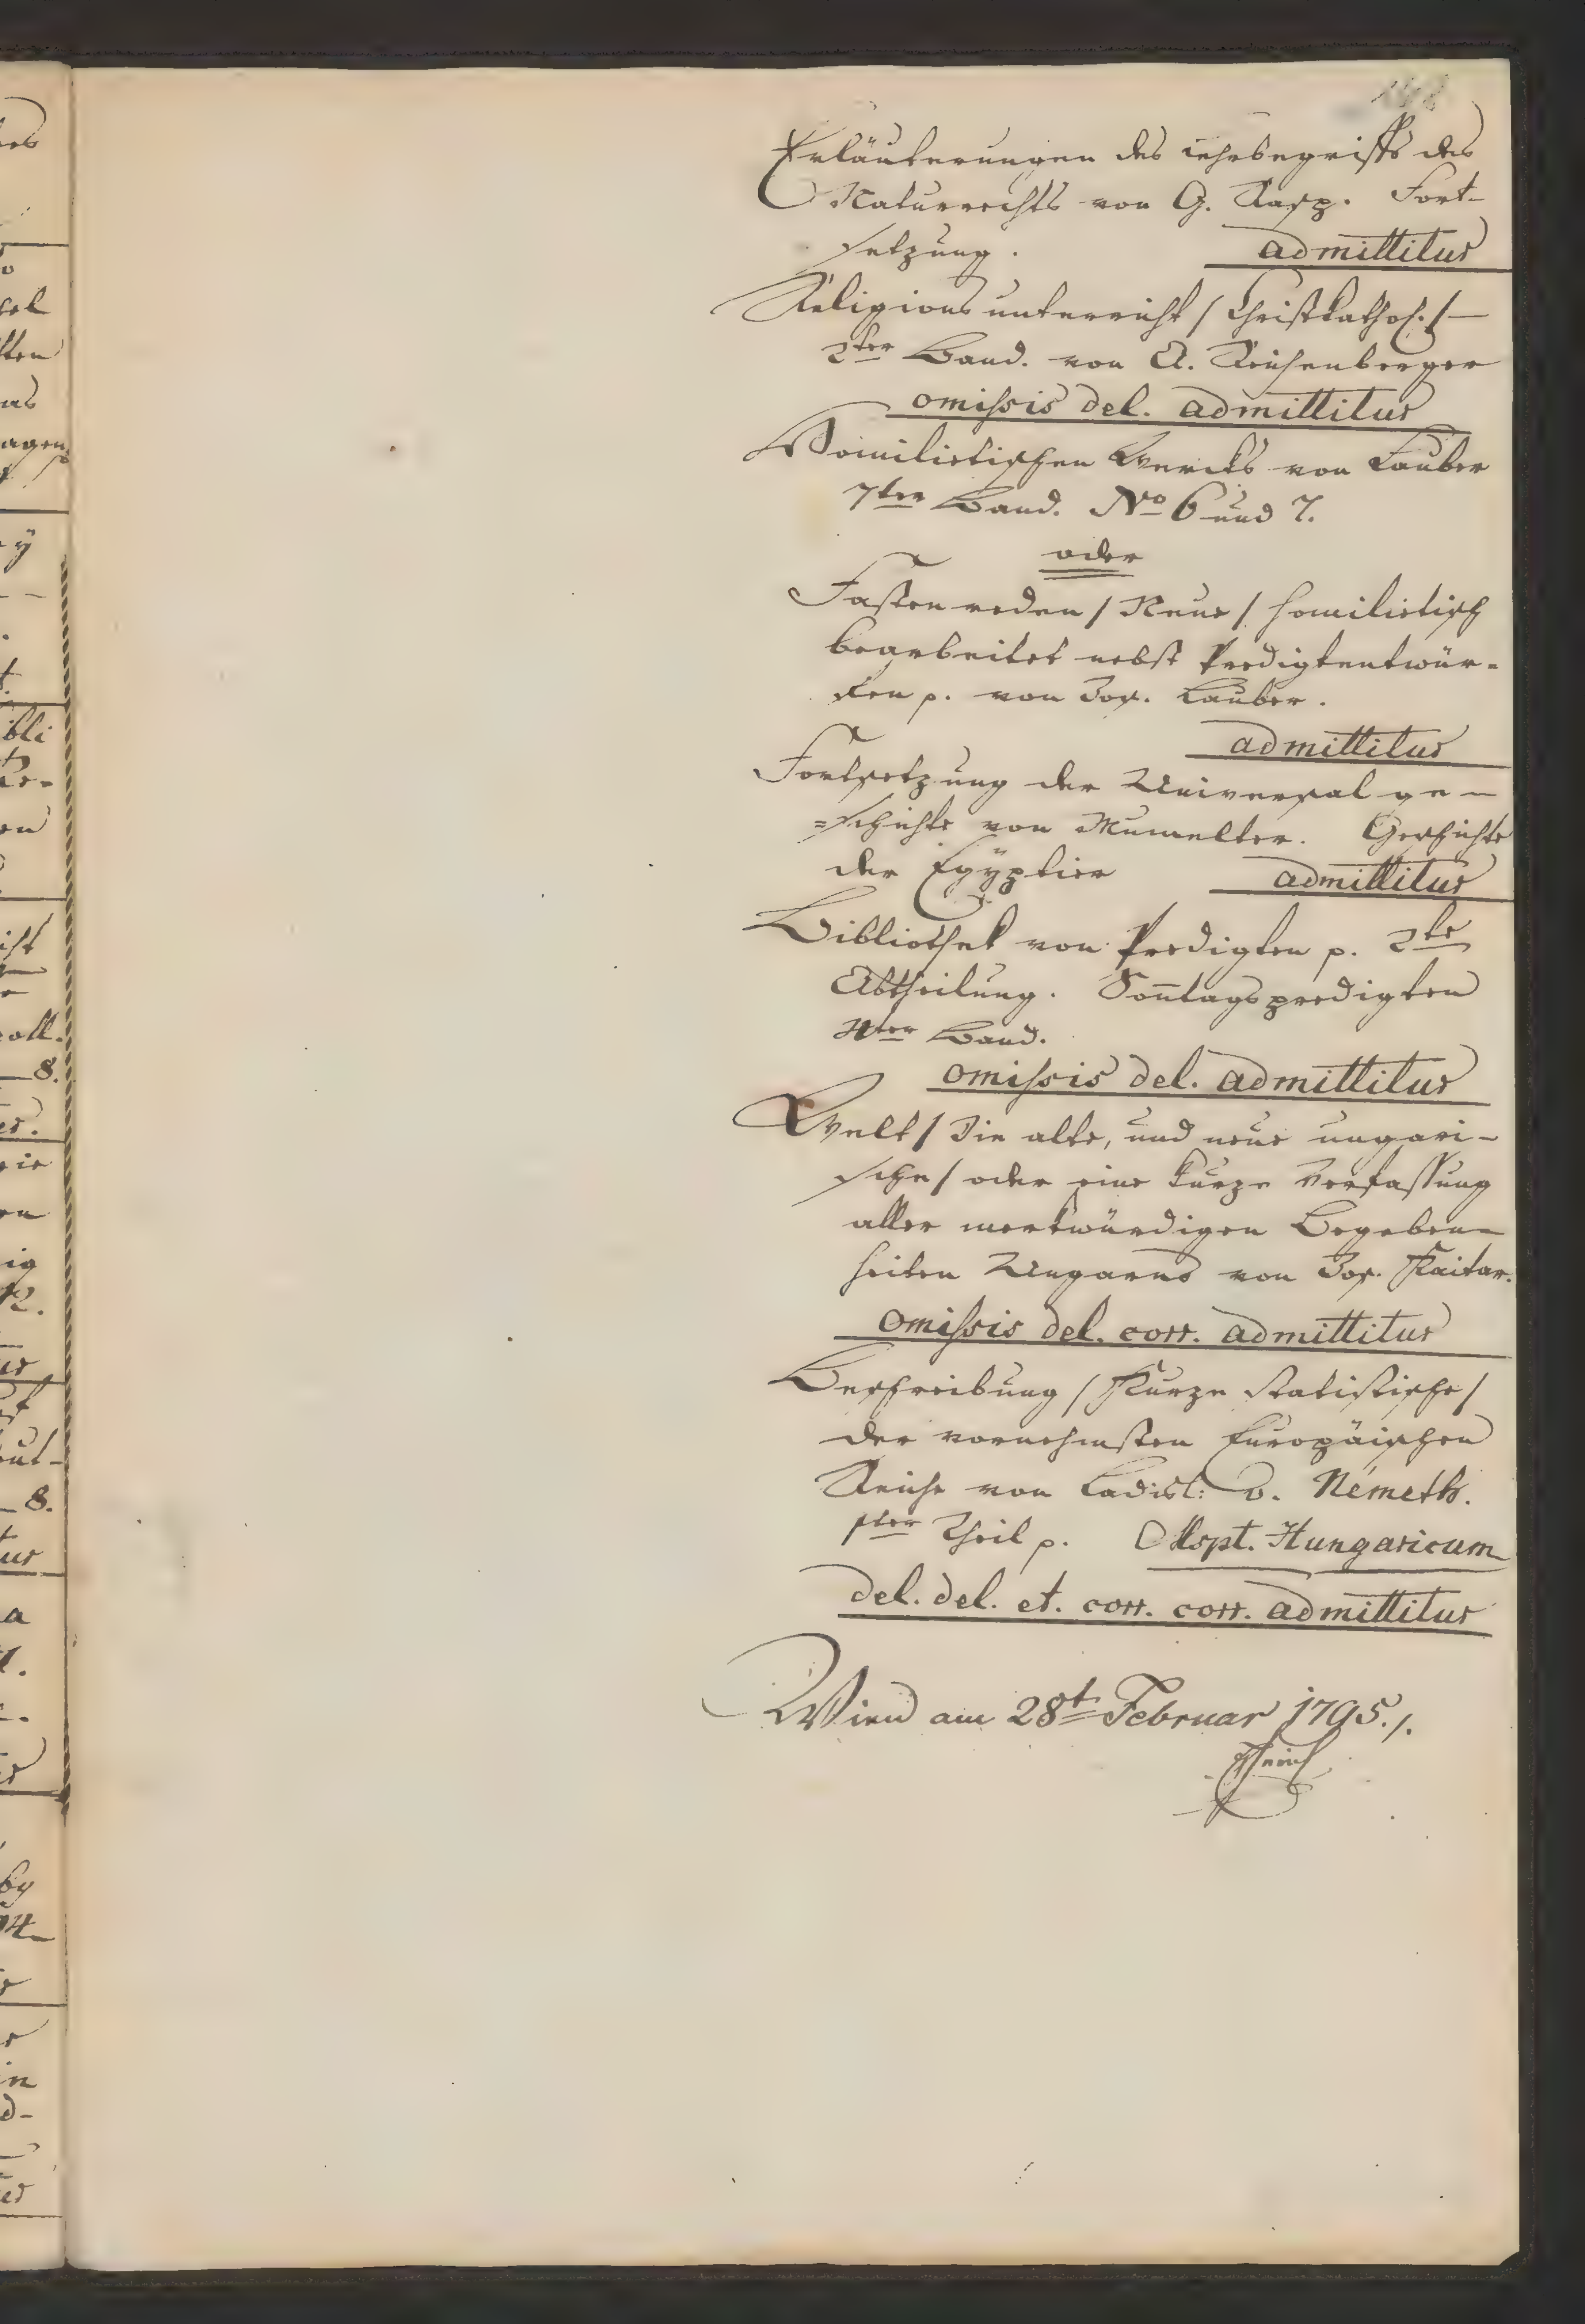 Erläuterungen des Lehrbegriffs des
Naturrechts von G. Rasp. Fort-
setzung. admittitur
Religionsunterricht / Christkathol. / —
2ter Band. von A. Reichenberger
omissis del. admittitur
Homilietischen Wercks von Lauber
7ter Band. No 6 und 7.
oder
Fastenreden / Neue / homilietisch
bearbeitet nebst Predigtentwür-
fen p. von Jos. Lauber.
admittitur
Fortsetzung der Universalge-
=schichte von Mumelter. Geschichte
der Egÿptier admittitur
Bibliothek von Predigten p. 2te
Abtheilung. Soñtagspredigten
4ter Band.
omissis del. admittitur
Welt / Die alte, und neue ungari-
sche / oder eine kurze Verfassung
aller merkwürdigen Begeben-
heiten Ungarns von Jos. Kaitar.
omissis del. corr. admittitur
Beschreibung / Kurze statistische /
der vornehmsten Europäischen
Reiche von Ladisl: v. Németh.
1ter Theil p. Mspt. Hungaricum
del. del. et. corr. corr. admittitur
Wien am 28t Februar 1795./.